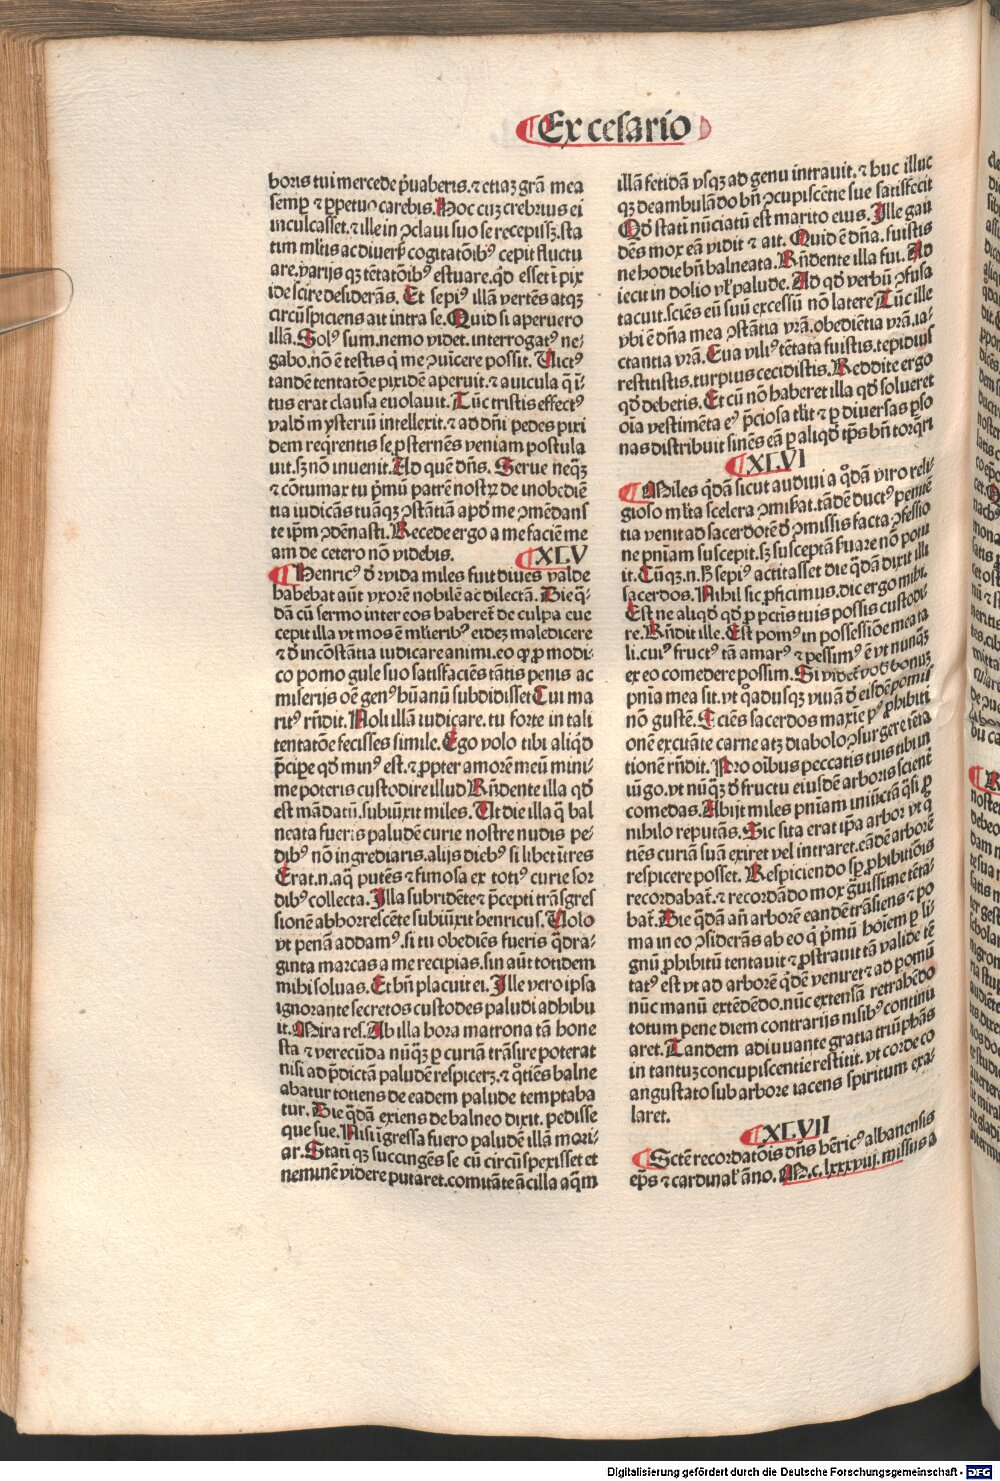 Ex cesario
boris tui mercede p̄uaberis. ⁊ etiaz grā mea
semꝑ ⁊ ꝑpetuo carebis. Hoc cuz crebrius ei
inculcasset. ⁊ ille in ꝯclaui suo se recepissꝫ. sta
tim ml̄tis ac diuers̄ cogitatōibꝰ cepit fluctu
are. varijs qꝫ tētatōibꝰ estuare. qd̓ esset ī pix
ide scire desiderās. Et sepiꝰ illā vertēs atqꝫ
circūspiciens ait intra se. Quid si aperuero
illā. Solꝰ sum. nemo videt. interrogatꝰ ne⸗
gabo. nō ē testis q̄ me ꝯuicere possit. Victꝰ
tandē tentatōe pixidē aperuit. ⁊ auicula q̄ ī⸗
tus erat clausa euolauit. Tūc tristis effectꝰ
vald̓ mysteriū intellexit. ⁊ ad dn̄i pedes pixi
dem reqrentis se ꝓsternēs veniam postula
uit. sꝫ nō inuenit. Ad quē dn̄s. Serue neqꝫ
⁊ cōtumax tu p̄mū patrē nostrꝝ de inobediē
tia iudicās tuāqꝫ ꝯstātiā apd̓ me ꝯmēdans
te ip̄m ꝯdēnasti. Recede ergo a me faciē me
am de cetero nō videbis. XLV
Henricꝰ d̓ vvida miles fuit diues valde
habebat aūt vxorē nobilē ac dilectā. Die q̄⸗
dā cū sermo inter eos haberet̄ de culpa eue
cepit illa vt mos ē ml̄ieribꝰ eidez maledicere
⁊ d̓ incōstātia iudicare animi. eo ꝙ ꝓ modi⸗
co pomo gule suo satisfaciēs tātis penis ac
miserijs oē genꝰ hūanū subdidisset Cui ma
ritꝰ rn̄dit. Noli illā iudicare. tu forte in tali
tentatōe fecisses simile. Ego volo tibi aliqd̓
p̄cipe qd̓ minꝰ est. ⁊ ꝓpter amorē meū mini⸗
me poteris custodire illud Rn̄dente illa qd̓
est mādatū. subiūxit miles. Ut die illa q̄ bal
neata fueris paludē curie nostre nudis pe⸗
dibꝰ nō ingrediaris. alijs diebꝰ si libet ītres
Erat. n. aq̄ putēs ⁊ fimosa ex totiꝰ curie sor
dibꝰ collecta. Illa subridēte ⁊ p̄cepti trāsgres
sionē abhorrescēte subiūxit henricus. Uolo
vt penā addamꝰ. si tu obediēs fueris q̄dra⸗
ginta marcas a me recipias. sin aūt totidem
mihi soluas. Et bn̄ placuit ei. Ille vero ipsa
ignorante secretos custodes paludi adhibu
it. Mira res. Ab illa hora matrona tā hone
sta ⁊ verecūda nūqꝫ ꝑ curiā trāsire poterat
nisi ad p̄dictā paludē respicerꝫ. ⁊ q̄tiēs balne
abatur totiens de eadem palude temptaba
tur. Die q̄dā exiens de balneo dixit. pedisse
que sue. Nisi īgressa fuero paludē illā mori⸗
ar. Stati qꝫ succingēs se cū circūspexisset et
neminē videre putaret. comitāte ācilla aq̄m
illā fetidā vsqꝫ ad genu intrauit. ⁊ huc illuc
qꝫ deambulādo bn̄ ꝯcupiscētie sue satisfecit
Qd̓ statī nūciatū est marito eius. Ille gau
dēs mox eā vidit ⁊ ait. Quid ē dn̄a. fuistis
ne hodie bn̄ balneata. Rn̄dente illa fui. Ad
iecit in dolio vl̓ palude. Ad qd̓ verbū ꝯfusa
tacuit. sciēs eū suū excessū nō latere Tūc ille
vbi ē dn̄a mea ꝯstātia vrā. obediētia vrā. ia⸗
ctantia vrā. Eua viliꝰ tētata fuistis. tepidius
restitistis. turpius cecidistis. Reddite ergo
qd̓ debetis. Et cū nō haberet illa qd̓ solueret
oīa vestimēta eꝰ p̄ciosa tl̄it ⁊ ꝑ diuersas ꝑso
nas distribuit sinēs eā ꝑ aliqd̓ tp̄s bn̄ torq̄ri
XLVI
Miles q̄dā sicut audiui a q̄dā viro reli⸗
gioso ml̄ta scelera ꝯmis̓at. tādē ductꝰ penitē
tia venit ad sacerdotē d̓ ꝯmissis facta ꝯfessio
ne pn̄iam suscepit. sꝫ susceptā s̓uare nō potu
it. Cūqꝫ. n. h̄ sepiꝰ actitasset die q̄dā dixit illi
sacerdos. Nihil sic ꝓficimus. dic ergo mihi.
Est ne aliqd̓ qd̓ ꝓ pctīs tuis possis custodi⸗
re. Rn̄dit ille. Est pomꝰ in possessiōe mea ta
li. cuiꝰ fructꝰ tā amarꝰ ⁊ pessimꝰ ē vt nunqꝫ
ex eo comedere possim. Si videt̄ vob̓ bonuꝫ
pn̄ia mea sit. vt q̄adusqꝫ viuā d̓ eisdē pomis
nō gustē. Sciēs sacerdos maxīe pꝰ ꝓhibiti
onē excitāte carne atꝫ diabolo ꝯsurgere tēta
tionē rn̄dit. Pro oībus peccatis tuis tibi in
iūgo. vt nūqꝫ d̓ fructu eiusdē arboris sciēnt̄
comedas. Abijt miles pn̄iam iniūctā q̄si ꝓ
nihilo reputās. Sic sita erat ip̄a arbor vt q̄
tiēs curiā suā exiret vel intraret. eādē arborē
respicere posset. Respiciendo sꝑ ꝓhibitiōis
recordabat̄. ⁊ recordādo mox gͣuissime tētā⸗
bat̄. Die q̄dā añ arborē eandē trāsiens ⁊ po
ma in eo ꝯsiderās ab eo q̄ p̄mū hoīem ꝑ li⸗
gnū ꝓhibitū tentauit ⁊ ꝓstrauit tā valide tē
tatꝰ est vt ad arborē q̄dē veniret ⁊ ad pomū
nūc manū extēdēdo. nūc extensā retrahēdo
totum pene diem contrarijs nisibꝰ continu
aret. Tandem adiuuante gratia triūphās
in tantuꝫ concupiscentie restitit. vt corde co
angustato sub arbore iacens spiritum exa⸗
laret.
XLVII
Sctē recordatōis dn̄s hēricꝰ albanensis
ep̄s ⁊ cardinal̓ āno. M.c.lxxxviij. missus a
Digitalisierung gefördert durch die Deutsche Forschungsgemeinschaft - DFG